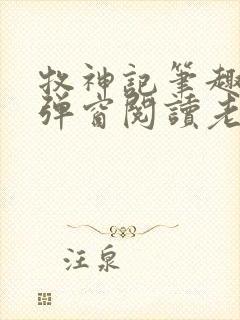 牧神記筆趣
彈窗閱讀老
汪泉